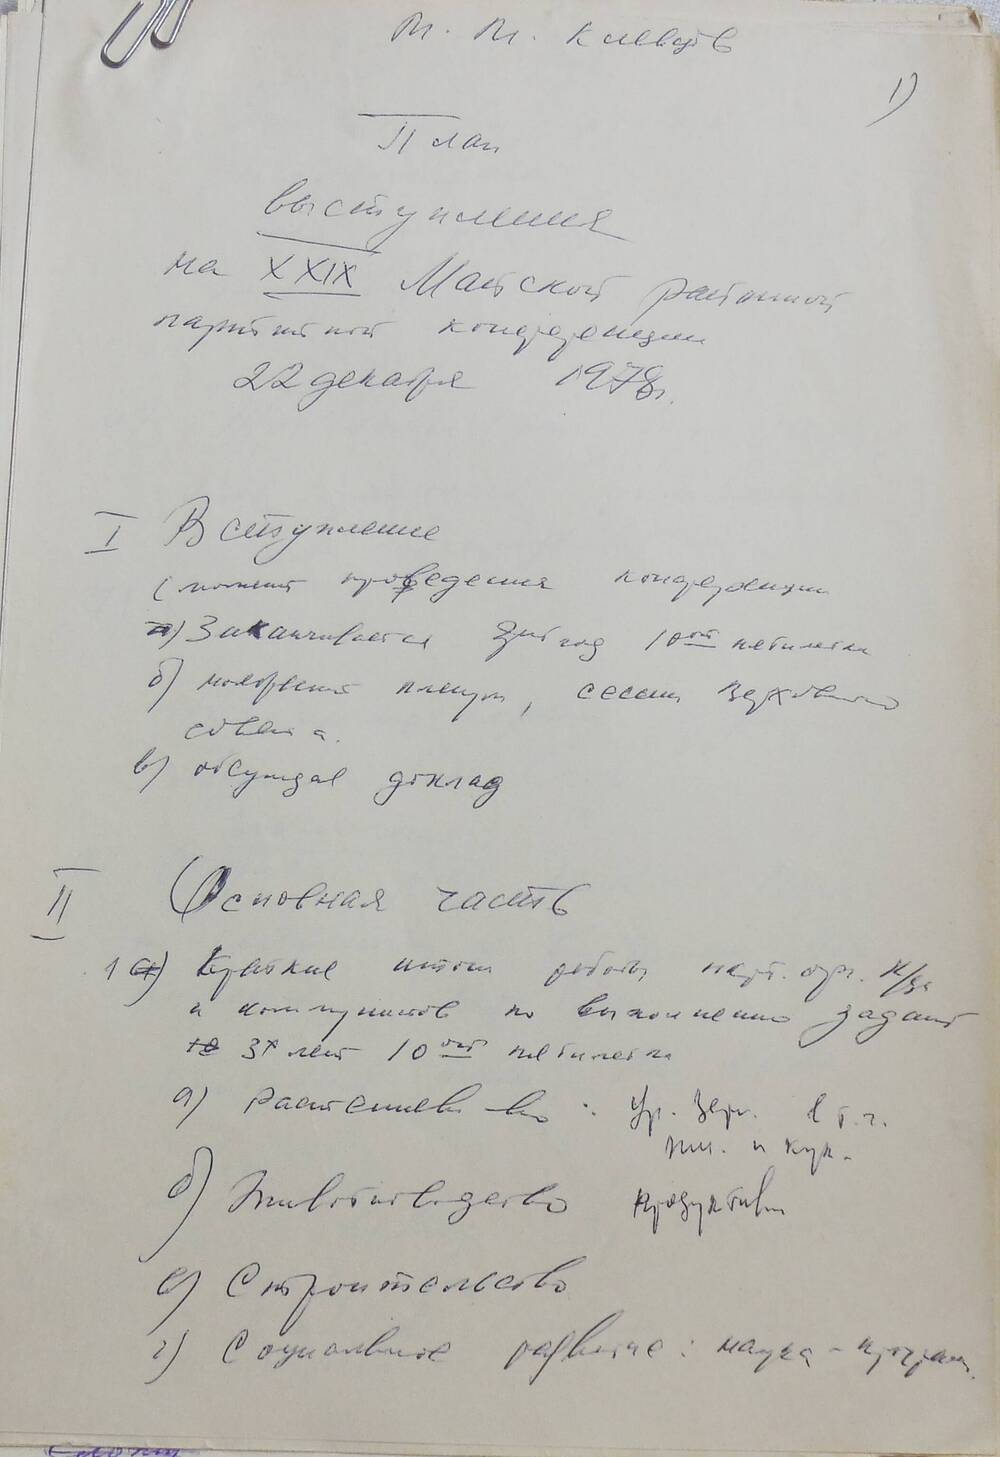 М. М. Клевцов
1)
План
выступления
на XXIX Майской районной
партийной конференции
22 декабря 1978г.
I Вступление
(момент проведения конференции
а) Заканчивается 3ий год 10ой пятилетки
б) ноябрьский пленум, сессии Верховного
совета.
в) обсуждае доклад
II Основная часть
1 а) Краткие итоги работы парт. орг. к/за
и коммунистов по выполнению заданий
3х лет 10ой пятилетки
а) растениев-во: Ур. зерн. в т.ч.
пш. и кук.
б) Животноводство продуктивн
в) Строительство
г) Социальное развитие: наука - програм.